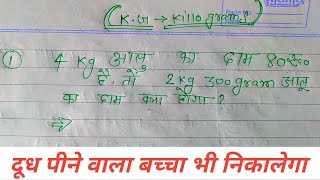 (K.G → killogram)
① 4 kg आलू का दाम 80₹
है, तो 2kg 300gram आलू
का दाम क्या होगा?
⇒
दूध पीने वाला बच्चा भी निकालेगा